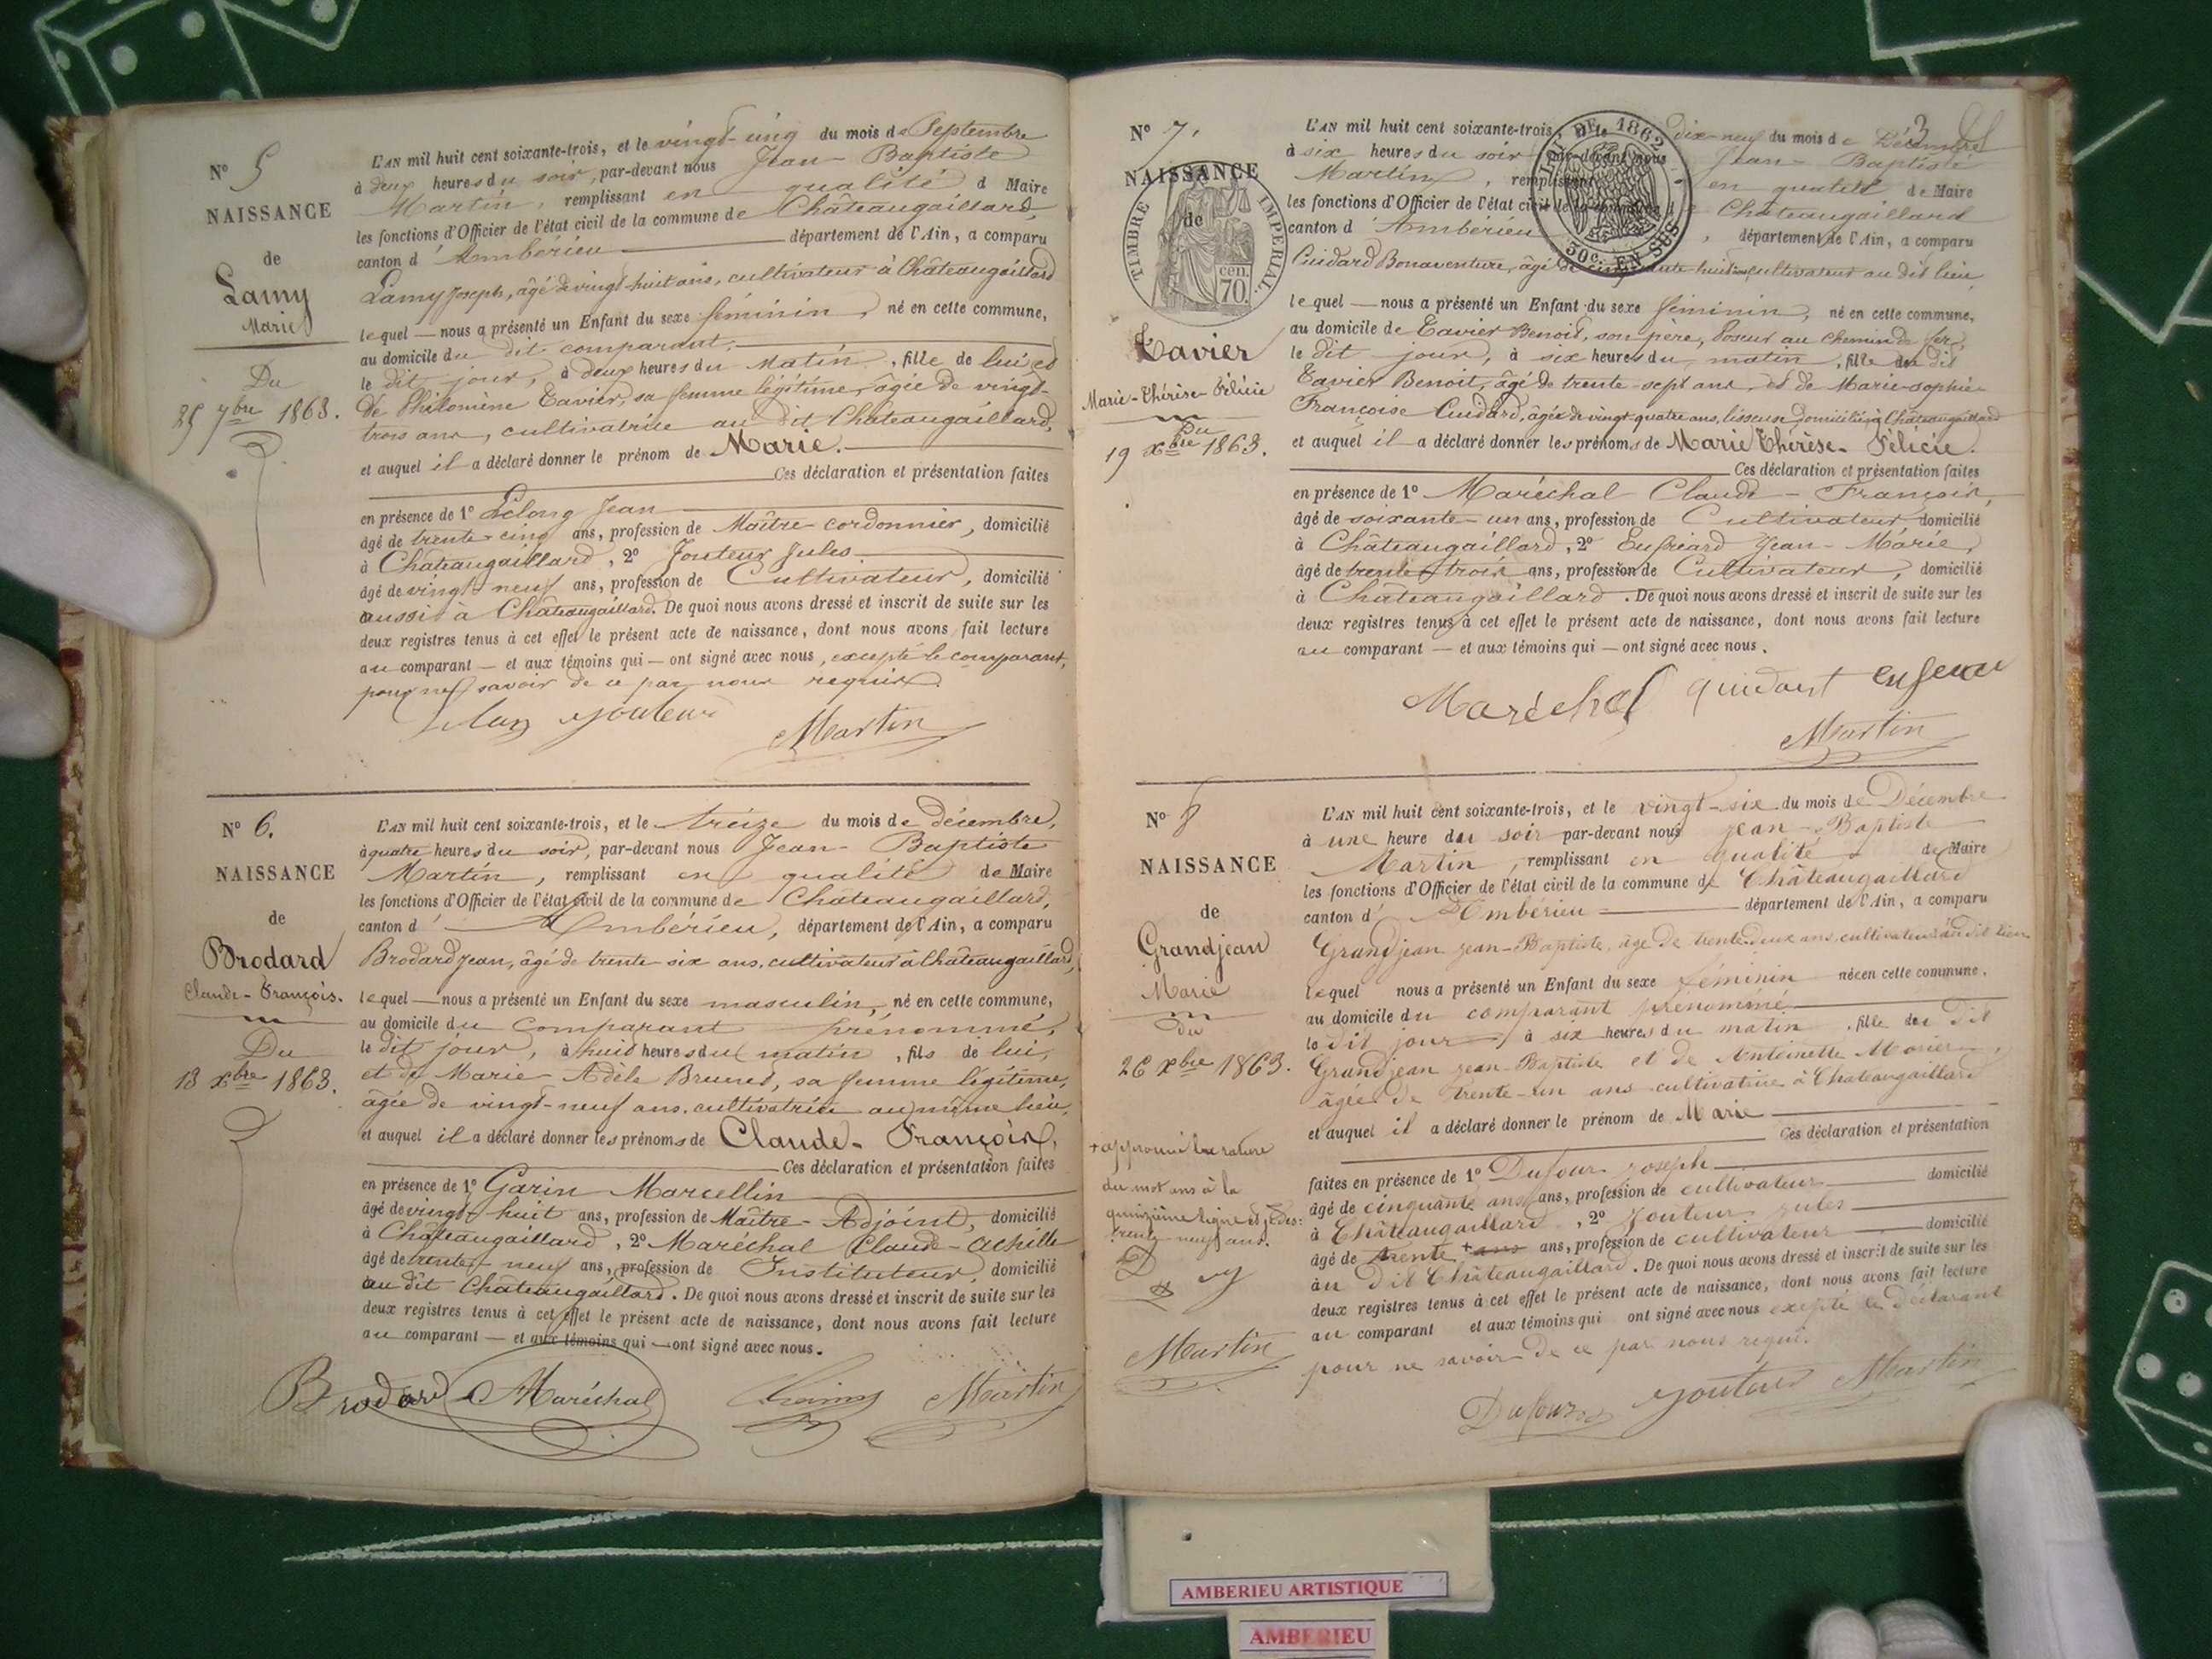 N° 5
NAISSANCE
de
Lamy
Marie
Du
25 7bre 1863.
L'AN mil huit cent soixante-trois, et le vingt-cinq du mois de Septembre
à deux heures du soir, par-devant nous Jean-Baptiste
Martin, remplissant en qualité d Maire
les fonctions d'Officier de l'état civil de la commune de Châteaugaillard,
canton d'Ambérieu département de l'Ain, a comparu
Lamy Joseph, âgé de vingt-huit ans, cultivateur à Châteaugaillard
lequel nous a présenté un Enfant du sexe féminin, né en cette commune,
au domicile du dit comparant,
le dit jour, à deux heures du matin, fille de lui et
de Philomène Tavier, sa femme légitime, âgée de vingt-
trois ans, cultivatrice au dit Châteaugaillard,
et auquel il a déclaré donner le prénom de Marie.
Ces déclaration et présentation faites
en présence de 1° Lelong Jean
âgé de trente-cinq ans, profession de Maître-cordonnier, domicilié
à Châteaugaillard, 2° Jouteur Jules
âgé de vingt-neuf ans, profession de Cultivateur, domicilié
aussi à Châteaugaillard. De quoi nous avons dressé et inscrit de suite sur les
deux registres tenus à cet effet le présent acte de naissance, dont nous avons fait lecture
au comparant — et aux témoins qui — ont signé avec nous, excepté le comparant,
pour ne savoir de ce par nous requis.
Jouteur Martin
N° 6.
NAISSANCE
de
Brodard
Claude-François.
Du
13 xbre 1863.
L'AN mil huit cent soixante-trois, et le treize du mois de décembre,
à quatre heures du soir, par-devant nous Jean-Baptiste
Martin, remplissant en qualité de Maire
les fonctions d'Officier de l'état civil de la commune de Châteaugaillard,
canton d' Ambérieu, département de l'Ain, a comparu
Brodard Jean, âgé de trente-six ans, cultivateur à Châteaugaillard,
lequel — nous a présenté un Enfant du sexe masculin, né en cette commune,
au domicile du comparant prénommé,
le dit jour, à huit heures du matin, fils de lui,
et de Marie-Adèle Brunet, sa femme légitime,
âgée de vingt-neuf ans, cultivatrice au même lieu,
et auquel il a déclaré donner les prénoms de Claude-François,
Ces déclaration et présentation faites
en présence de 1° Garin Marcellin
âgé de vingt-huit ans, profession de Maître-Adjoint, domicilié
à Châteaugaillard, 2° Maréchal Claude-Achille
âgé de trente-neuf ans, profession de Instituteur, domicilié
au dit Châteaugaillard. De quoi nous avons dressé et inscrit de suite sur les
deux registres tenus à cet effet le présent acte de naissance, dont nous avons fait lecture
au comparant — et aux témoins qui — ont signé avec nous.
Brodard Maréchal Martin
3
N° 7.
NAISSANCE
de
TIMBRE IMPERIAL
70 cen.
Tavier
Marie-Thérèse-Félicie
Du
19 xbre 1863.
DE 1862
50c. EN SUS
L'AN mil huit cent soixante-trois, et le dix-neuf du mois de Décembre
à six heures du soir par-devant nous Jean-Baptiste
Martin, remplissant en qualité de Maire
les fonctions d'Officier de l'état civil de la commune de Châteaugaillard
canton d' Ambérieu, département de l'Ain, a comparu
Cuidard Bonaventure, âgé de cinquante-huit ans, cultivateur au dit lieu,
lequel — nous a présenté un Enfant du sexe féminin, né en cette commune,
au domicile de Tavier Benoit, son père, Poseur au chemin de fer,
le dit jour, à six heures du matin, fille du dit
Tavier Benoit, âgé de trente-sept ans, et de Marie-Sophie-
Françoise Cuidard, âgée de vingt-quatre ans, lisseuse domiciliés à Châteaugaillard
et auquel il a déclaré donner les prénoms de Marie Thérèse-Félicie.
Ces déclaration et présentation faites
en présence de 1° Maréchal Claude-François,
âgé de soixante-un ans, profession de Cultivateur, domicilié
à Châteaugaillard, 2° Jean-Marie,
âgé de trente-trois ans, profession de Cultivateur, domicilié
à Châteaugaillard. De quoi nous avons dressé et inscrit de suite sur les
deux registres tenus à cet effet le présent acte de naissance, dont nous avons fait lecture
au comparant — et aux témoins qui — ont signé avec nous.
Maréchal
Martin
N° 8
NAISSANCE
de
Grandjean
Marie
du
26 xbre 1863.
L'AN mil huit cent soixante-trois, et le vingt-six du mois de Décembre
à une heure du soir par-devant nous Jean-Baptiste
Martin, remplissant en qualité de Maire
les fonctions d'Officier de l'état civil de la commune de Châteaugaillard
canton d' Ambérieu département de l'Ain, a comparu
Grandjean Jean-Baptiste, âgé de trente-deux ans, cultivateur au dit lieu
lequel nous a présenté un Enfant du sexe féminin née en cette commune,
au domicile du comparant prénommé
le dit jour, à six heures du matin, fille du dit
Grandjean Jean-Baptiste et de Antoinette Morier,
âgée de trente-un ans cultivatrice à Châteaugaillard
et auquel il a déclaré donner le prénom de Marie
Ces déclaration et présentation
faites en présence de 1° Dufour Joseph
âgé de cinquante ans ans, profession de cultivateur domicilié
à Châteaugaillard, 2° Jouteur Jules
âgé de trente + ans ans, profession de cultivateur domicilié
au dit Châteaugaillard. De quoi nous avons dressé et inscrit de suite sur les
deux registres tenus à cet effet le présent acte de naissance, dont nous avons fait lecture
au comparant et aux témoins qui ont signé avec nous excepté le déclarant
pour ne savoir de ce par nous requi.
Dufour Jouteur Martin
+ approuvé la rature
du mot ans à la
quinzième ligne
Martin
AMBERIEU ARTISTIQUE
AMBERIEU